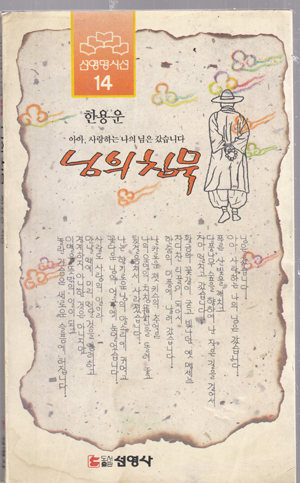 선영명시선
14
한용운
아아, 사랑하는 나의 님은 갔습니다
님의 침묵
님은 갔습니다.
아아, 사랑하는 나의 님은 갔습니다.
푸른 산빛을 깨치고
단풍나무 숲을 향하여 난 작은 길을 걸어서
차마 떨치고 갔습니다.
황금의 꽃같이 굳고 빛나던 옛 맹세는
차디찬 티끌이 되어서
한숨의 미풍에 날아갔습니다.
날카로운 첫 키스의 추억은
나의 운명의 지침을 돌려 놓고
뒷걸음쳐서 사라졌습니다.
나는 향기로운 님의 말소리에 귀먹고
꽃다운 님의 얼굴에 눈멀었습니다.
사랑도 사람의 일이라
만날 때에 미리 떠날 것을 염려하고
경계하지 아니한 것은 아니지만
이별은 뜻밖의 일이 되고
놀란 가슴은 새로운 슬픔에 터집니다.
도서출판 선영사